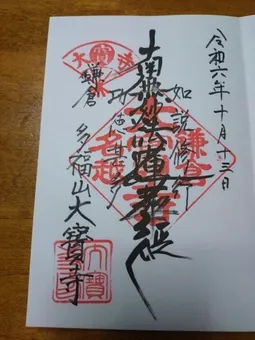 令和六年十月十三日
如説修行
南無妙法蓮華経
功徳甚多
鎌倉
多福山大寶寺
鎌倉